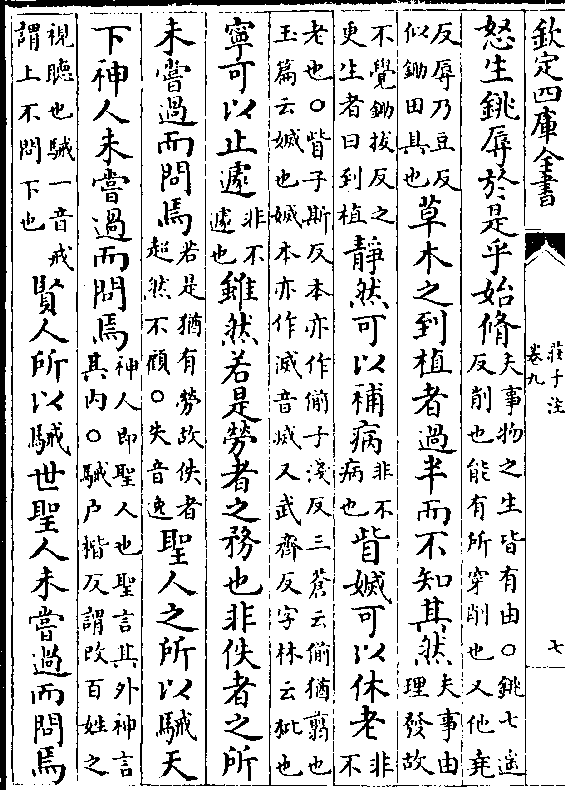 欽定四庫全書
莊子注
卷九
七
怒生銚鎒於是乎始脩夫事物之生皆有由○銚七遥反削也能有所穿削也又他堯
反鎒乃豆反似鋤田具也草木之到植者過半而不知其然夫事由理發故
不覺鋤拔反之更生者曰到植靜然可以補病非不病也眥㓕可以休老非不
老也○眥子斯反本亦作揃子淺反三蒼云揃猶翦也玉篇云㓕也㓕本亦作滅音㓕又武齊反字林云批也
寧可以止遽非不遽也雖然若是勞者之務也非佚者之所
未嘗過而問焉若是猶有勞故佚者超然不顧○失音逸聖人之所以駴天
下神人未嘗過而問焉神人即聖人也聖言其外神言其内○駴户揩反謂改百姓之
視聽也駴一音戒謂上不問下也賢人所以駴世聖人未嘗過而問焉